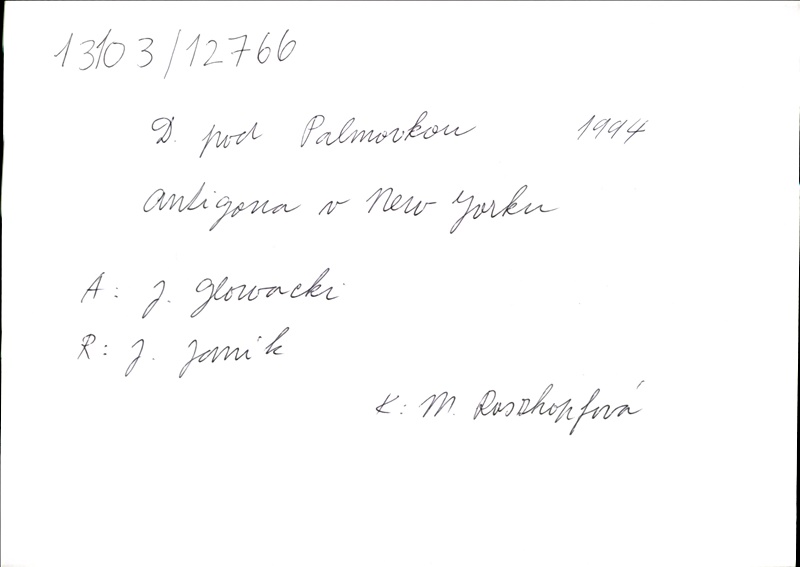 13103/12766
D. pod Palmovkou 1994
Antigona v New Yorku
A: J. Glowacki
R: J. Janik
K: M. Roszkopfová